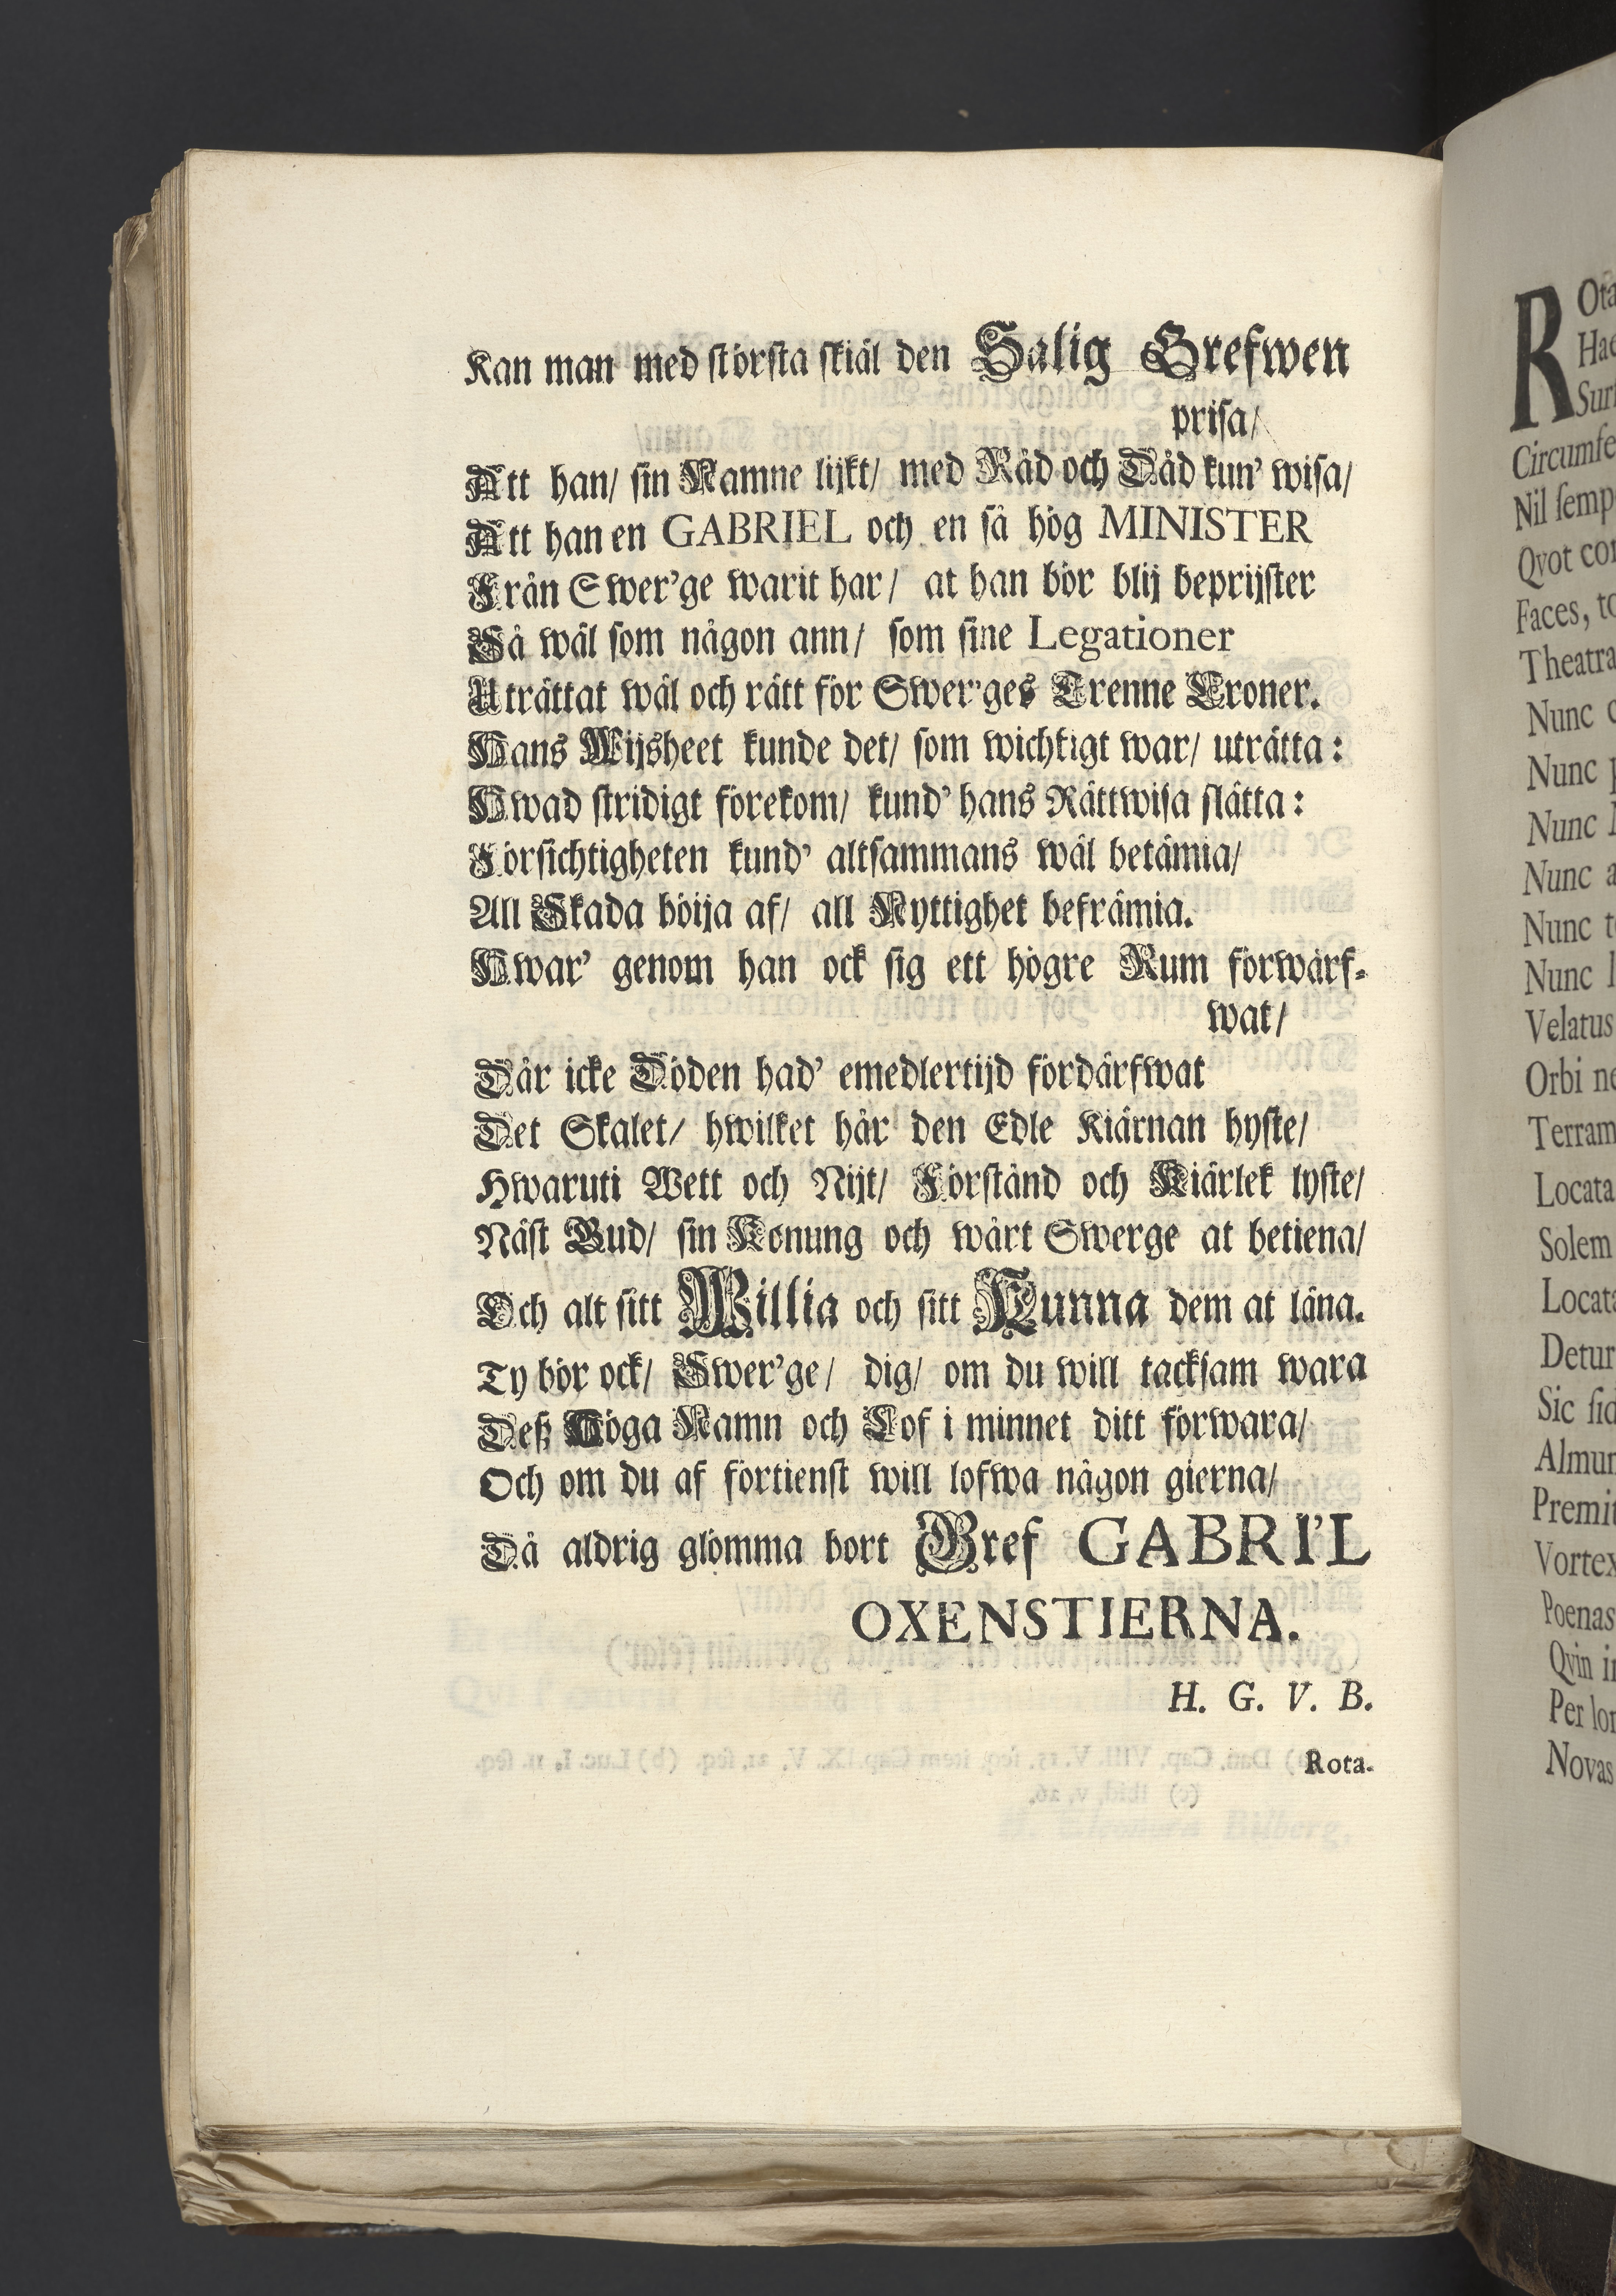 Kan man med största skiäl den Salig Grefwen
prisa/
Att han/ sin Namne lijkt/ med Råd och Dåd kun' wisa/
Att han en GABRIEL och en så hög MINISTER
Från Swer'ge warit har/ at han bör blij beprijster
Så wäl som någon ann/ som sine Legationer
Uträttat wäl och rätt för Swer'ges Trenne Croner.
Hans Wijsheet kunde det/ som wichtigt war/ uträtta:
Hwad stridigt förekom/ kund' hans Rättwisa slätta:
Försichtigheten kund' altsammans wäl betämia/
All Skada böija af/ all Nyttighet befrämia.
Hwar' genom han ock sig ett högre Rum förwärf-
wat/
Där icke Döden had' emedlertijd fördärfwat
Det Skalet/ hwilket här den Edle Kiärnan hyste/
Hwaruti Wett och Nijt/ Förstånd och Kiärlek lyste/
Näst Gud/ sin Konung och wårt Swerge at betiena/
Och alt sitt Willia och sitt Kunna dem at läna.
Ty bör ock/ Swer'ge/ dig/ om du will tacksam wara
Deß Höga Namn och Lof i minnet ditt förwara/
Och om du af förtienst will lofwa någon gierna/
Då aldrig glömma bort Gref GABRI'L
OXENSTIERNA.
H. G. V. B.
Rota-
R Ota
Hae
Sur
Circumfe
Nil ſemp
Qvot cor
Faces, to
Theatra
Nunc c
Nunc p
Nunc
Nunc a
Nunc t
Nunc l
Velatus
Orbi ne
Terram
Locata
Solem
Locata
Detur
Sic ſid
Almum
Premit
Vortex
Poenas
Qvin i
Per lon
Novas